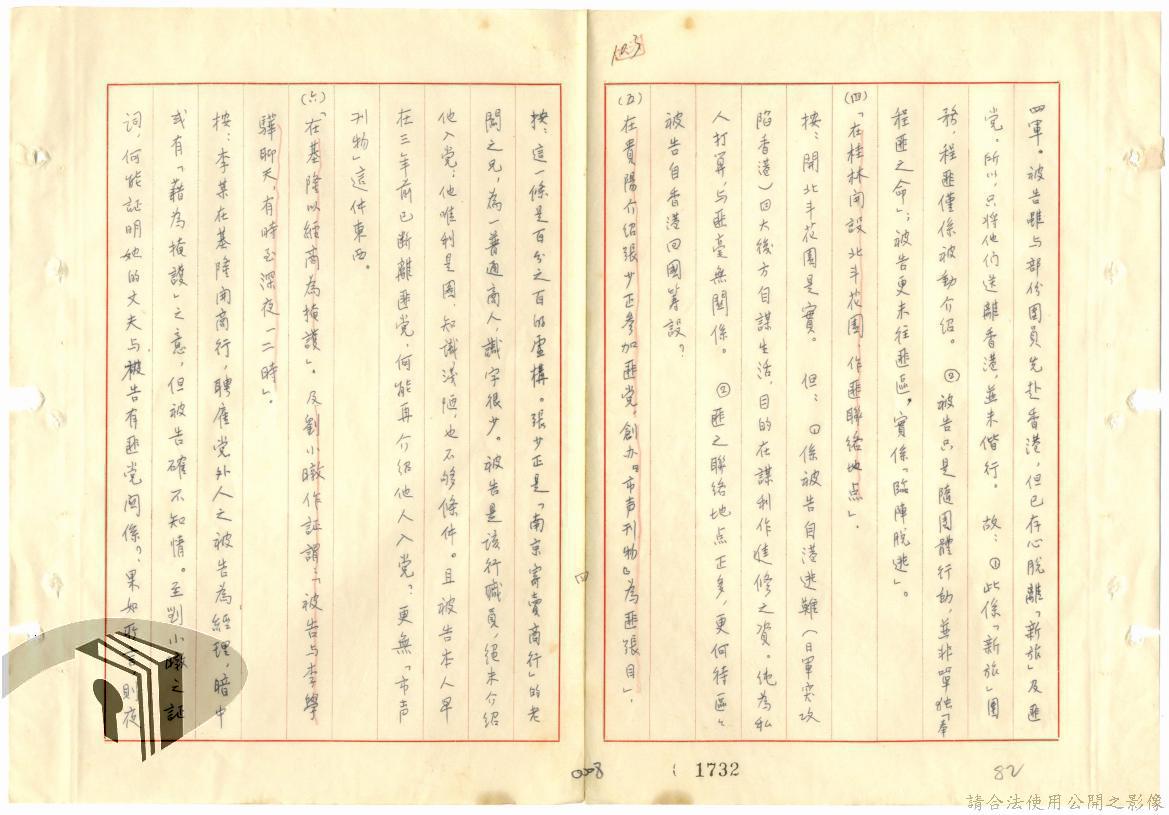 四軍。被告雖与部份團員先赴香港，但已存心脫離「新旅」及匪
党。所以，只將他們送離香港，並未偕行。 故：①此係「新旅」團
務，程匪僅係被動介紹。 ②被告只是隨團體行動，並非單独「奉
程匪之命」；被告更未往匪區，實係「臨陣脫逃」。
(四)「在桂林開設北斗花園，作匪聯絡地点」.
按：開北斗花園是實。 但：①係被告自港逃難（日軍突攻
陷香港）回大後方自謀生活，目的在謀利作進修之資。純為私
人打算，与匪毫無關係。 ②匪之聯絡地点正多，更何待區々
被告自香港回國籌設？
(五)在貴陽介紹張少正參加匪党，創办『市声刊物』為匪張目」.
按：這一條是百分之百的虛構。張少正是「南京寄賣商行」的老
闆之兄，為一普通商人，識字很少。被告是该行職員，絕未介紹
他入党；他唯利是圖，知識淺陋，也不够條件。且被告本人早
在三年前已断離匪党，何能再介紹他人入党？更無「市声
刊物」這件東西。
(六)「在基隆以經商為掩護」. 及劉小暾作証謂：「被告与李學
驊聊天，有時至深夜一二時」.
按：李某在基隆開商行，聘雇党外人之被告為經理，暗中
或有「藉為掩護」之意，但被告確不知情。至劉小暾之証
詞，何能証明她的丈夫与被告有匪党関係？果如所言，則夜
四
008
1732
82
請合法使用公開之影像